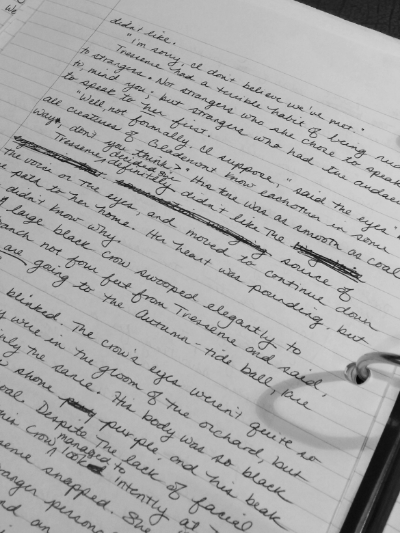 We
didn't like.
"I'm sorry, I don't believe we've met."
Tressene had a terrible habit of being
to strangers. Not strangers who she chose to speak
to, mind you; but strangers who had the
to speak to her first.
"Well, not formally, I suppose," said the eyes.
all creatures of know eachother in some
way, don't you think?" His tone was as smooth as coal
Tressene decidedly didn't like the
the voice or the eyes, and source of
path to her home. moved to continue down
Her heart was pounding, but
didn't know why.
A large black crow swooped elegantly to
branch not four feet from Tressene and said,
are going to the Autumn-tide ball,
blinked. The crow's eyes weren't quite so
were in the gloom of the orchard, but
the same. His body was so black
shone purple and his beak
coal. Despite the lack of facial
crow managed to
intently at
snapped. She